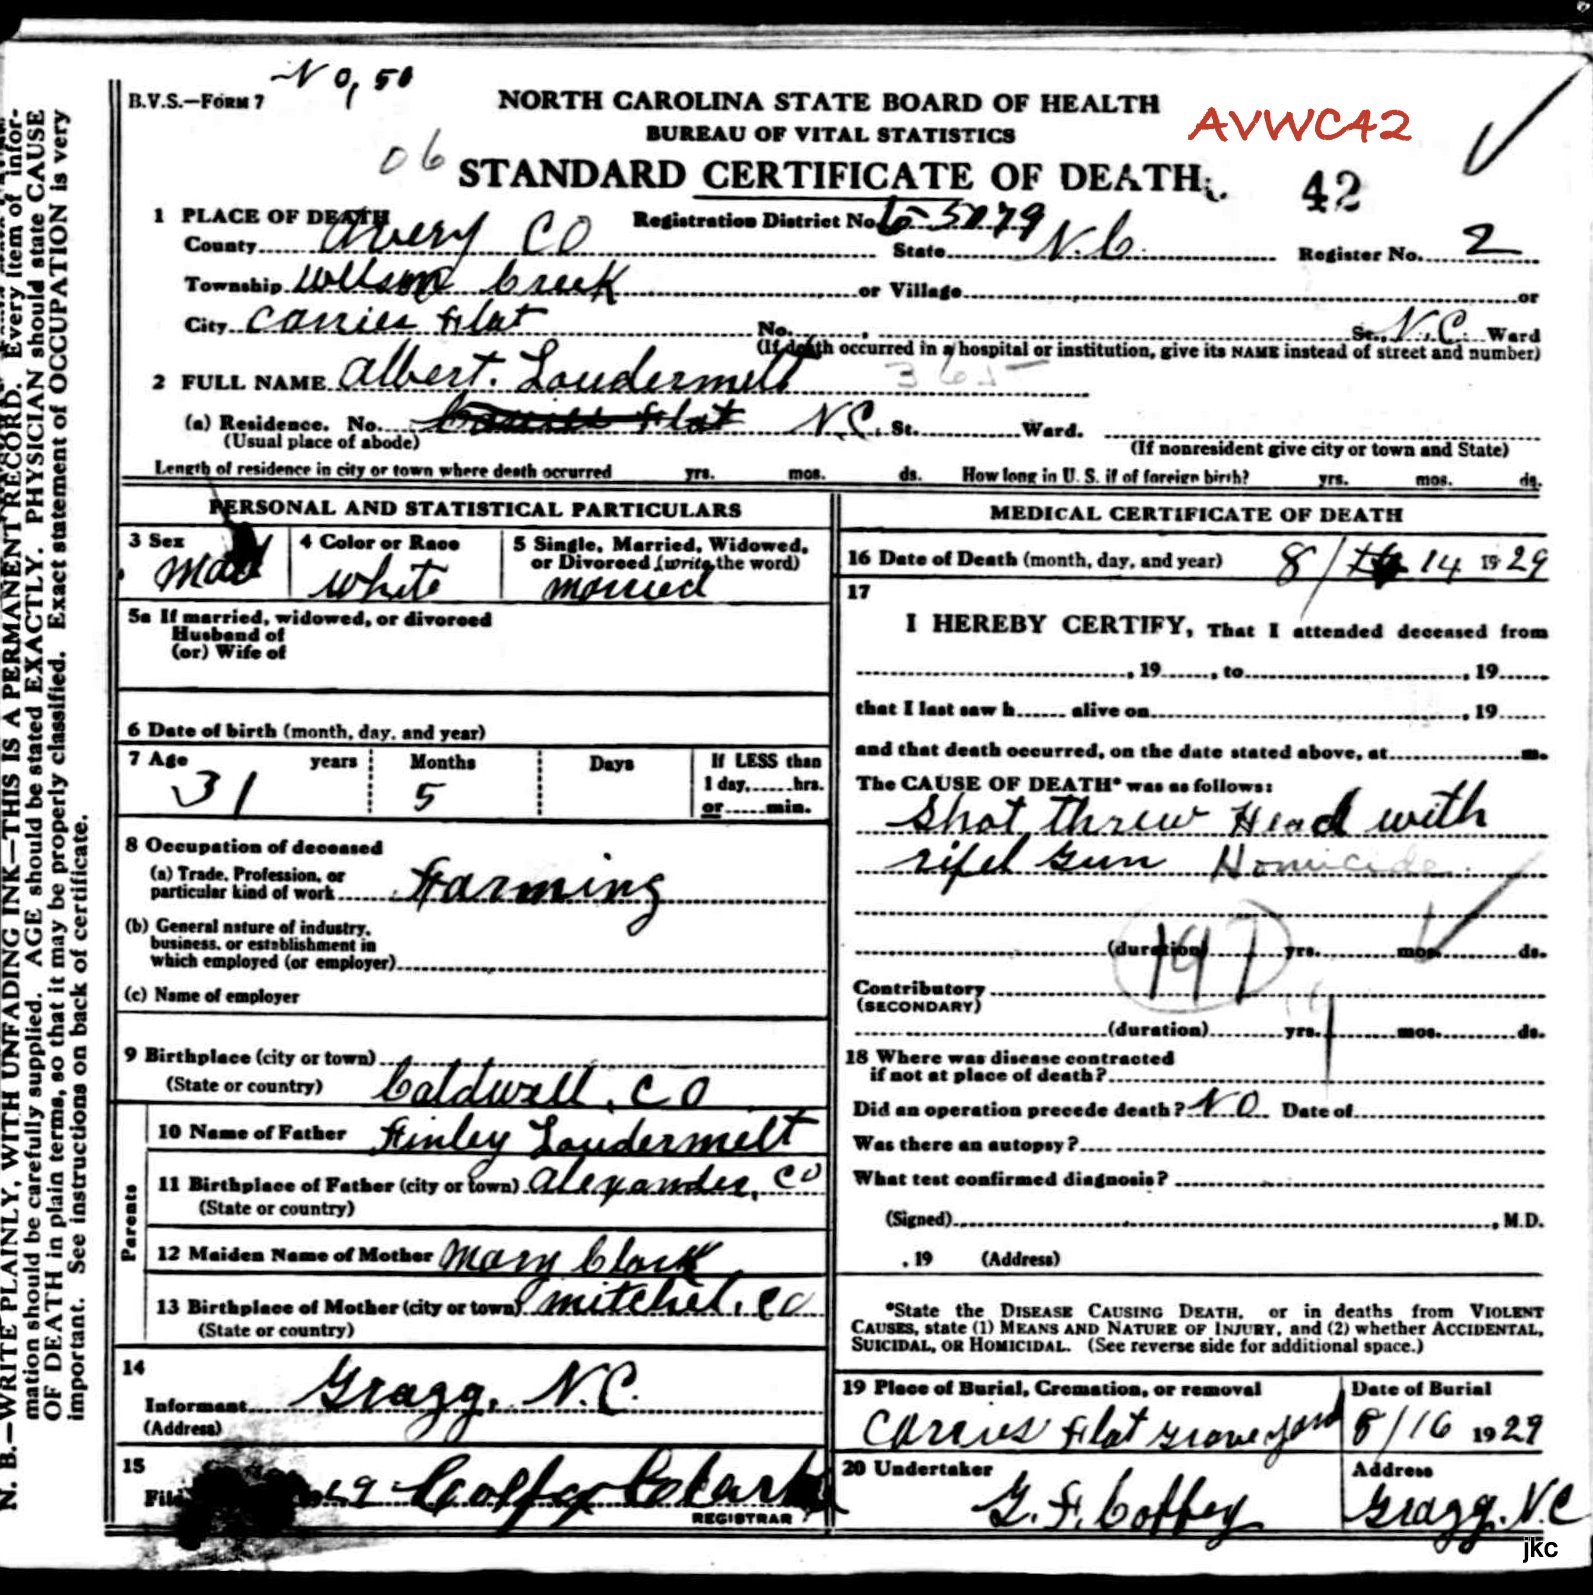 No, 50
B.V.S.—FORM 7
NORTH CAROLINA STATE BOARD OF HEALTH
BUREAU OF VITAL STATISTICS
AVWC42
06
STANDARD CERTIFICATE OF DEATH
42
1 PLACE OF DEATH
Registration District No. 6-5079
County Avery CO State N.C. Register No. 2
Township Willson Creek or Village or
City Carries Flat No. St., N.C. Ward
(If death occurred in a hospital or institution, give its NAME instead of street and number)
2 FULL NAME Albert. Loudermelt 365
(a) Residence. No. Carries Flat N.C. St. Ward.
(Usual place of abode) (If nonresident give city or town and State)
Length of residence in city or town where death occurred yrs. mos. ds. How long in U. S. if of foreign birth? yrs. mos. ds.
PERSONAL AND STATISTICAL PARTICULARS
3 Sex 4 Color or Race 5 Single, Married, Widowed,
or Divorced (write the word)
white married
5a If married, widowed, or divorced
Husband of
(or) Wife of
6 Date of birth (month, day, and year)
7 Age years Months Days If LESS than
1 day,......hrs.
or......min.
31 5
8 Occupation of deceased
(a) Trade, Profession, or
particular kind of work Farming
(b) General nature of industry,
business, or establishment in
which employed (or employer)
(c) Name of employer
9 Birthplace (city or town)
(State or country) Caldwell, CO
Parents
10 Name of Father Finley Loudermelt
11 Birthplace of Father (city or town) Alexander, CO
(State or country)
12 Maiden Name of Mother Mary Clark
13 Birthplace of Mother (city or town) Mitchel, CO
(State or country)
14
Informant Gragg, N.C.
(Address)
15
29 Coffey Clark
REGISTRAR
MEDICAL CERTIFICATE OF DEATH
16 Date of Death (month, day, and year) 8/14 1929
17
I HEREBY CERTIFY, That I attended deceased from
, 19......, to , 19......
that I last saw h...... alive on , 19......
and that death occurred, on the date stated above, at m.
The CAUSE OF DEATH* was as follows:
Shot threw Head with
rifel Gun Homicide
(duration) yrs. mos. ds.
197
Contributory
(SECONDARY)
(duration) yrs. mos. ds.
18 Where was disease contracted
if not at place of death?
Did an operation precede death? NO Date of
Was there an autopsy?
What test confirmed diagnosis?
(Signed) , M.D.
, 19 (Address)
*State the DISEASE CAUSING DEATH, or in deaths from VIOLENT
CAUSES, state (1) MEANS AND NATURE OF INJURY, and (2) whether ACCIDENTAL,
SUICIDAL, OR HOMICIDAL. (See reverse side for additional space.)
19 Place of Burial, Cremation, or removal Date of Burial
Carries Flat Graveyard 8/16 1929
20 Undertaker Address
G. F. Coffey Gragg, N.C
jkc
N. B.—WRITE PLAINLY, WITH UNFADING INK—THIS IS A PERMANENT RECORD. Every item of infor-
mation should be carefully supplied. AGE should be stated EXACTLY. PHYSICIAN should state CAUSE
OF DEATH in plain terms, so that it may be properly classified. Exact statement of OCCUPATION is very
important. See instructions on back of certificate.